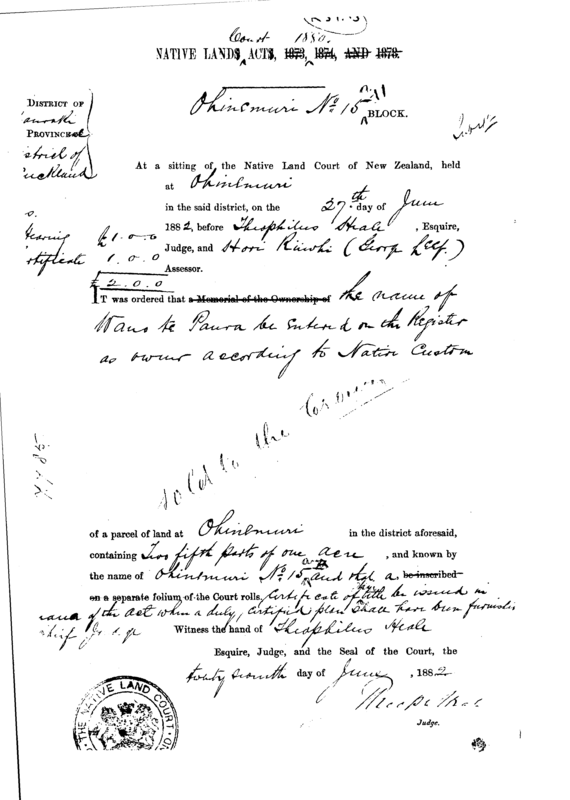 Court 1880.
NATIVE LANDS ACTS, 1873, 1874, AND 1878.
Ohinemuri No 15
BLOCK.
DISTRICT OF
PROVINCE
District of
Auckland
At a sitting of the Native Land Court of New Zealand, held
at Ohinemuri
in the said district, on the 27th day of June
1882, before Theophilus Heale, Esquire,
Hearing £1.0.0
Judge, and Hori Riiwhi (George
Certificate 1.0.0
Assessor.
£2.0.0
IT was ordered that a Memorial of the Ownership of the name of
te Paura be entered on the Register
as owner according to Native Custom
Sold to the Crown
of a parcel of land at Ohinemuri in the district aforesaid,
containing Two fifth parts of one acre, and known by
the name of Ohinemuri No 15 and that a be inscribed
on a separate folium of the Court rolls, Certificate of title be issued in
of the Act when a duly certified plan shall have been furnished
Witness the hand of Theophilus Heale
Esquire, Judge, and the Seal of the Court, the
twenty seventh day of June, 1882
Judge.
THE NATIVE LAND COURT